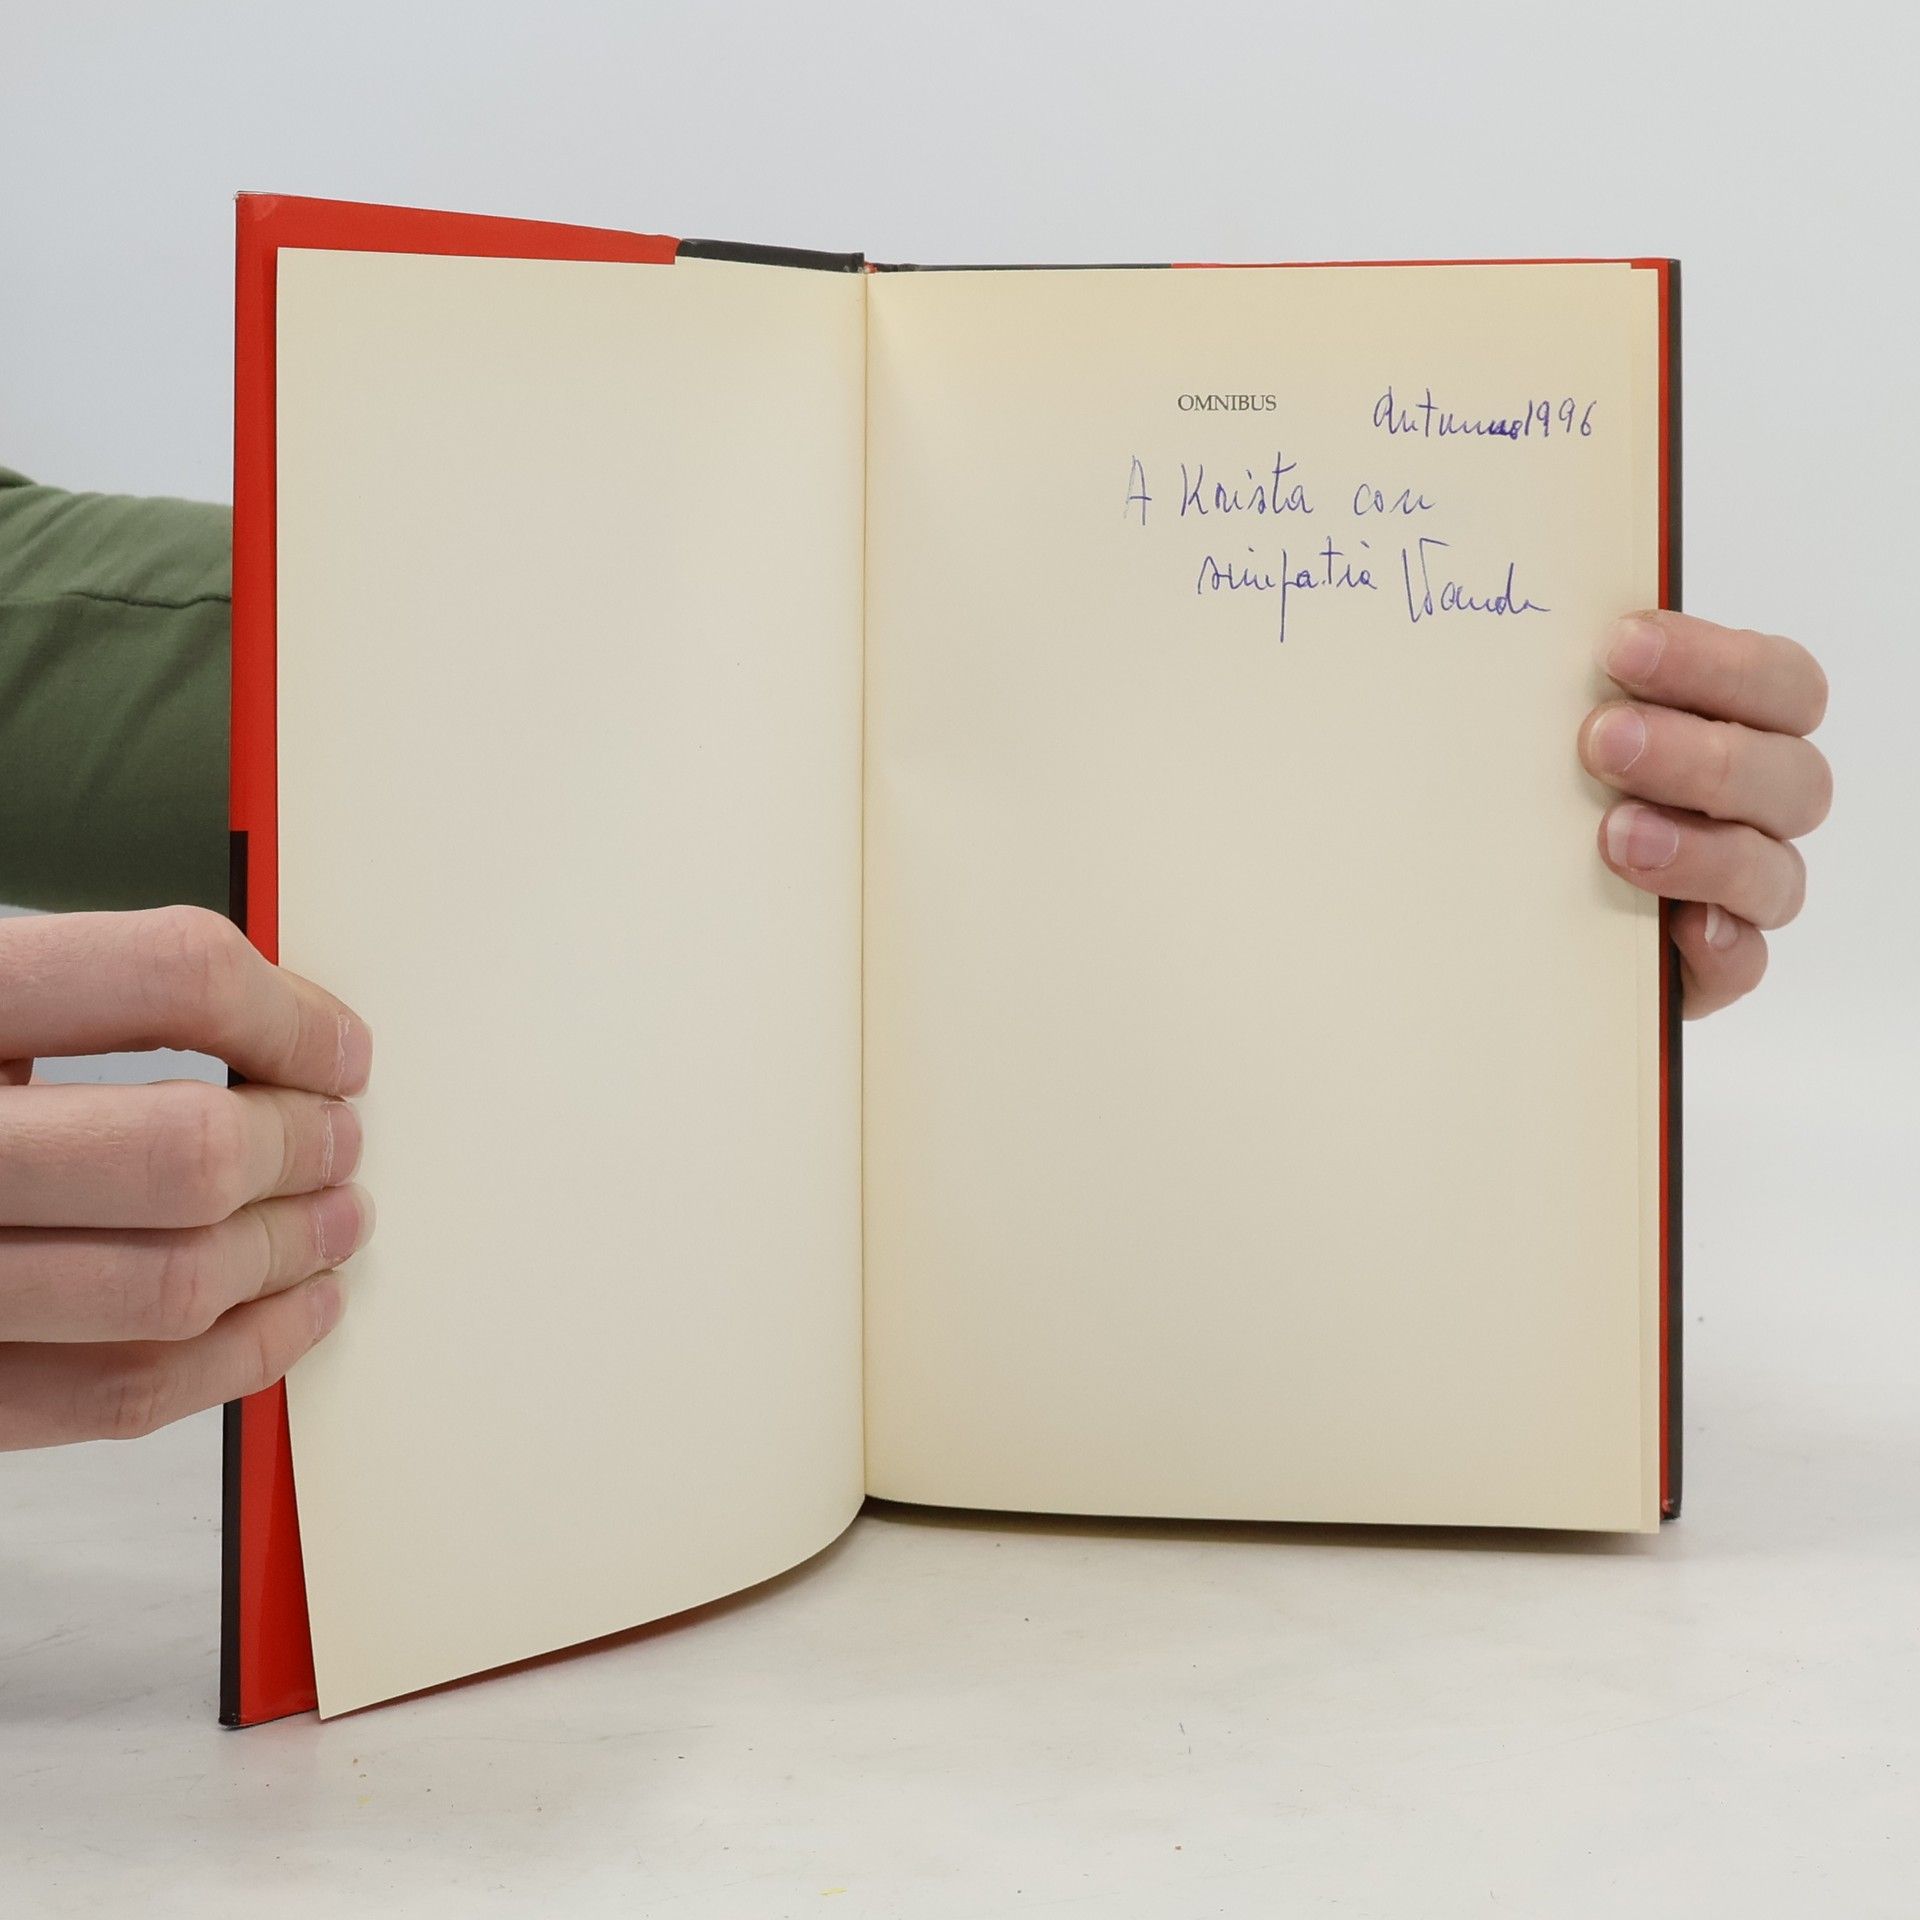 OMNIBUS
Autunno 1996
A Krista con
simpatia Wanda